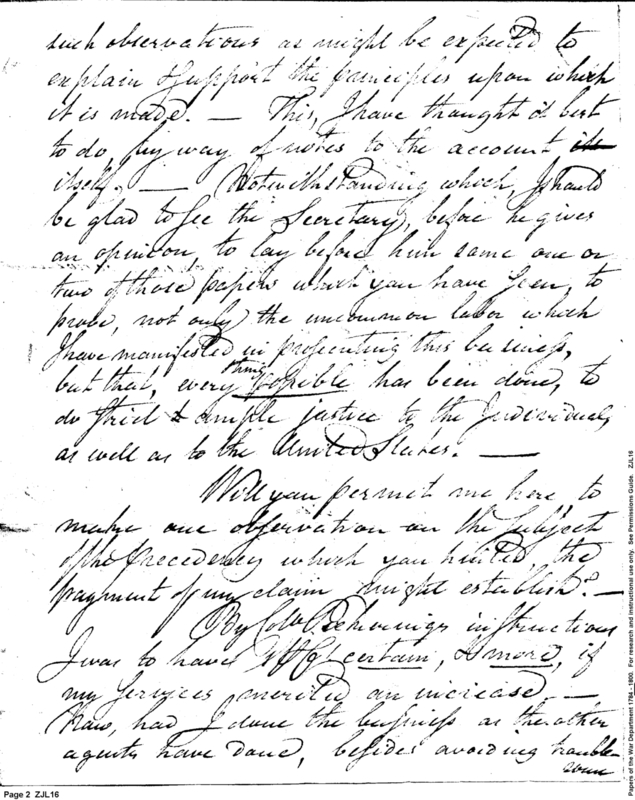 such observations as might be expected to
explain & support the principles upon which
it is made. — This, I have thought it best
to do, by way of notes to the account
itself. — Notwithstanding which, I should
be glad to see the Secretary, before he gives
an opinion, to lay before him some one or
two of those papers which you have seen, to
prove, not only the uncommon labor which
I have manifested in prosecuting this business,
but that, every thing possible has been done, to
do strict & ample justice to the Individuals
as well as to the United States. —
Will you permit me here to
make one observation on the subject
of the precedency which you hinted the
payment of my claim might establish? —
By Colo instructions
I was to have certain, & more, if
my services merited an increase —
Now, had I done the business as the other
agents have done, besides avoiding trouble-
some
Page 2 ZJL16
Papers of the War Department 1784 - 1800. For research and instructional use only. See Permissions Guide. ZJL16